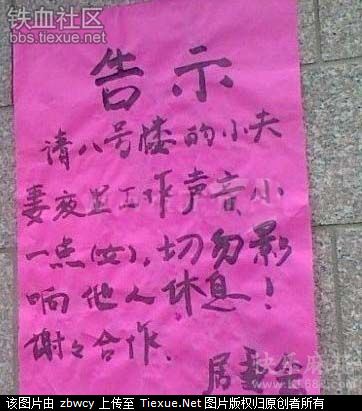 铁血社区
bbs.tiexue.net
告示
请八号楼的小夫
妻夜里工作声音小
一点(女),切勿影
响他人休息!
谢々合作.
居委会
该图片由 zbwcy 上传至 Tiexue.Net 图片版权归原创者所有